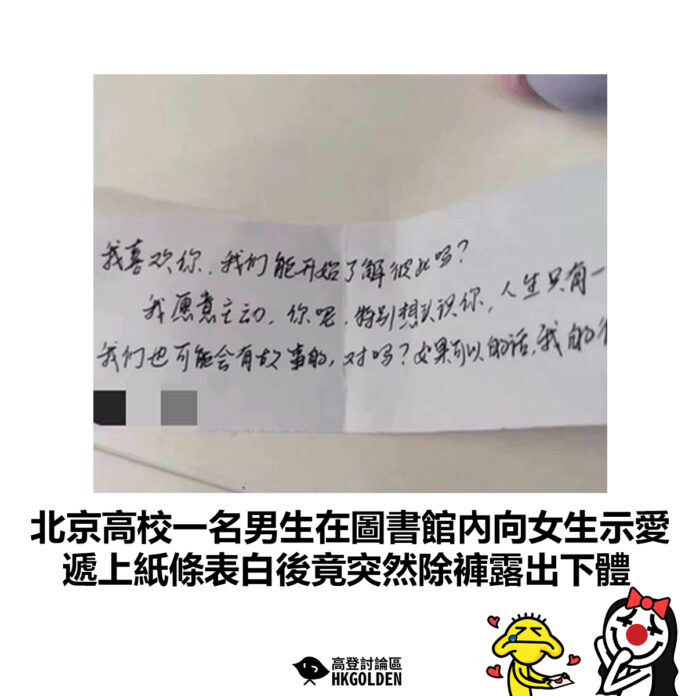 我喜欢你,我们能开始了解彼此吗?
我愿意主动,你呢,特别想认识你,人生只有一
我们也可能会有故事的,对吗?如果可以的话,我的
北京高校一名男生在圖書館內向女生示愛
遞上紙條表白後竟突然除褲露出下體
高登討論區
HKGOLDEN